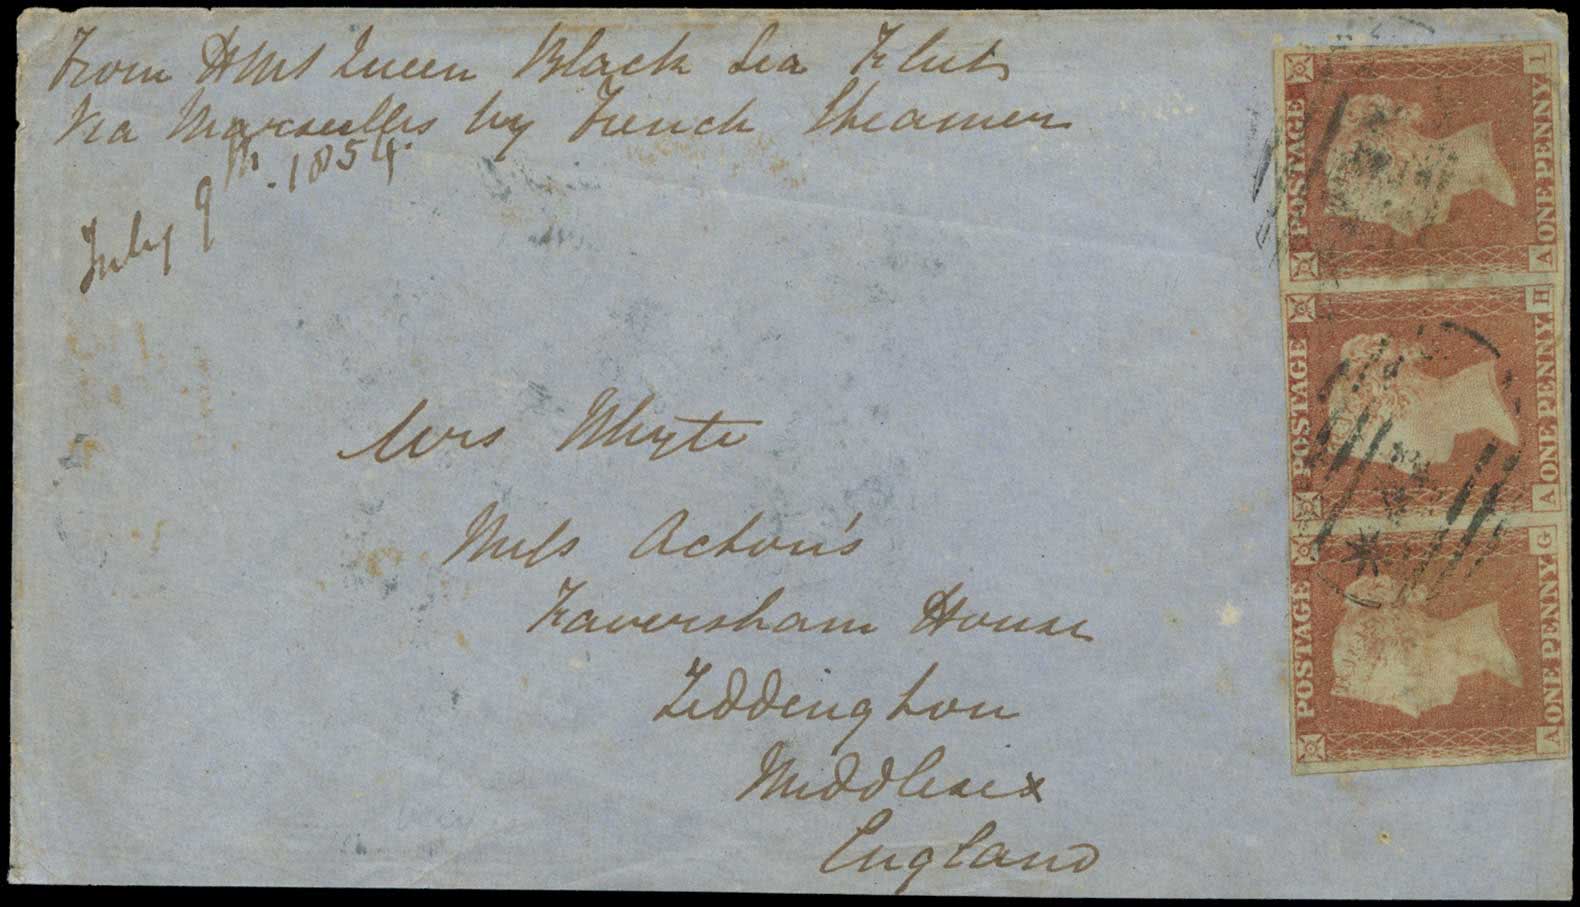 From HMS Queen Black Sea Fleet
Via Marseilles by French Steamer
July 9th. 1854.
Mrs Whyte
Miss Acton's
Faversham House
Teddington
Middlesex
England
POSTAGE
ONE PENNY
A I
POSTAGE
ONE PENNY
A H
POSTAGE
ONE PENNY
A G